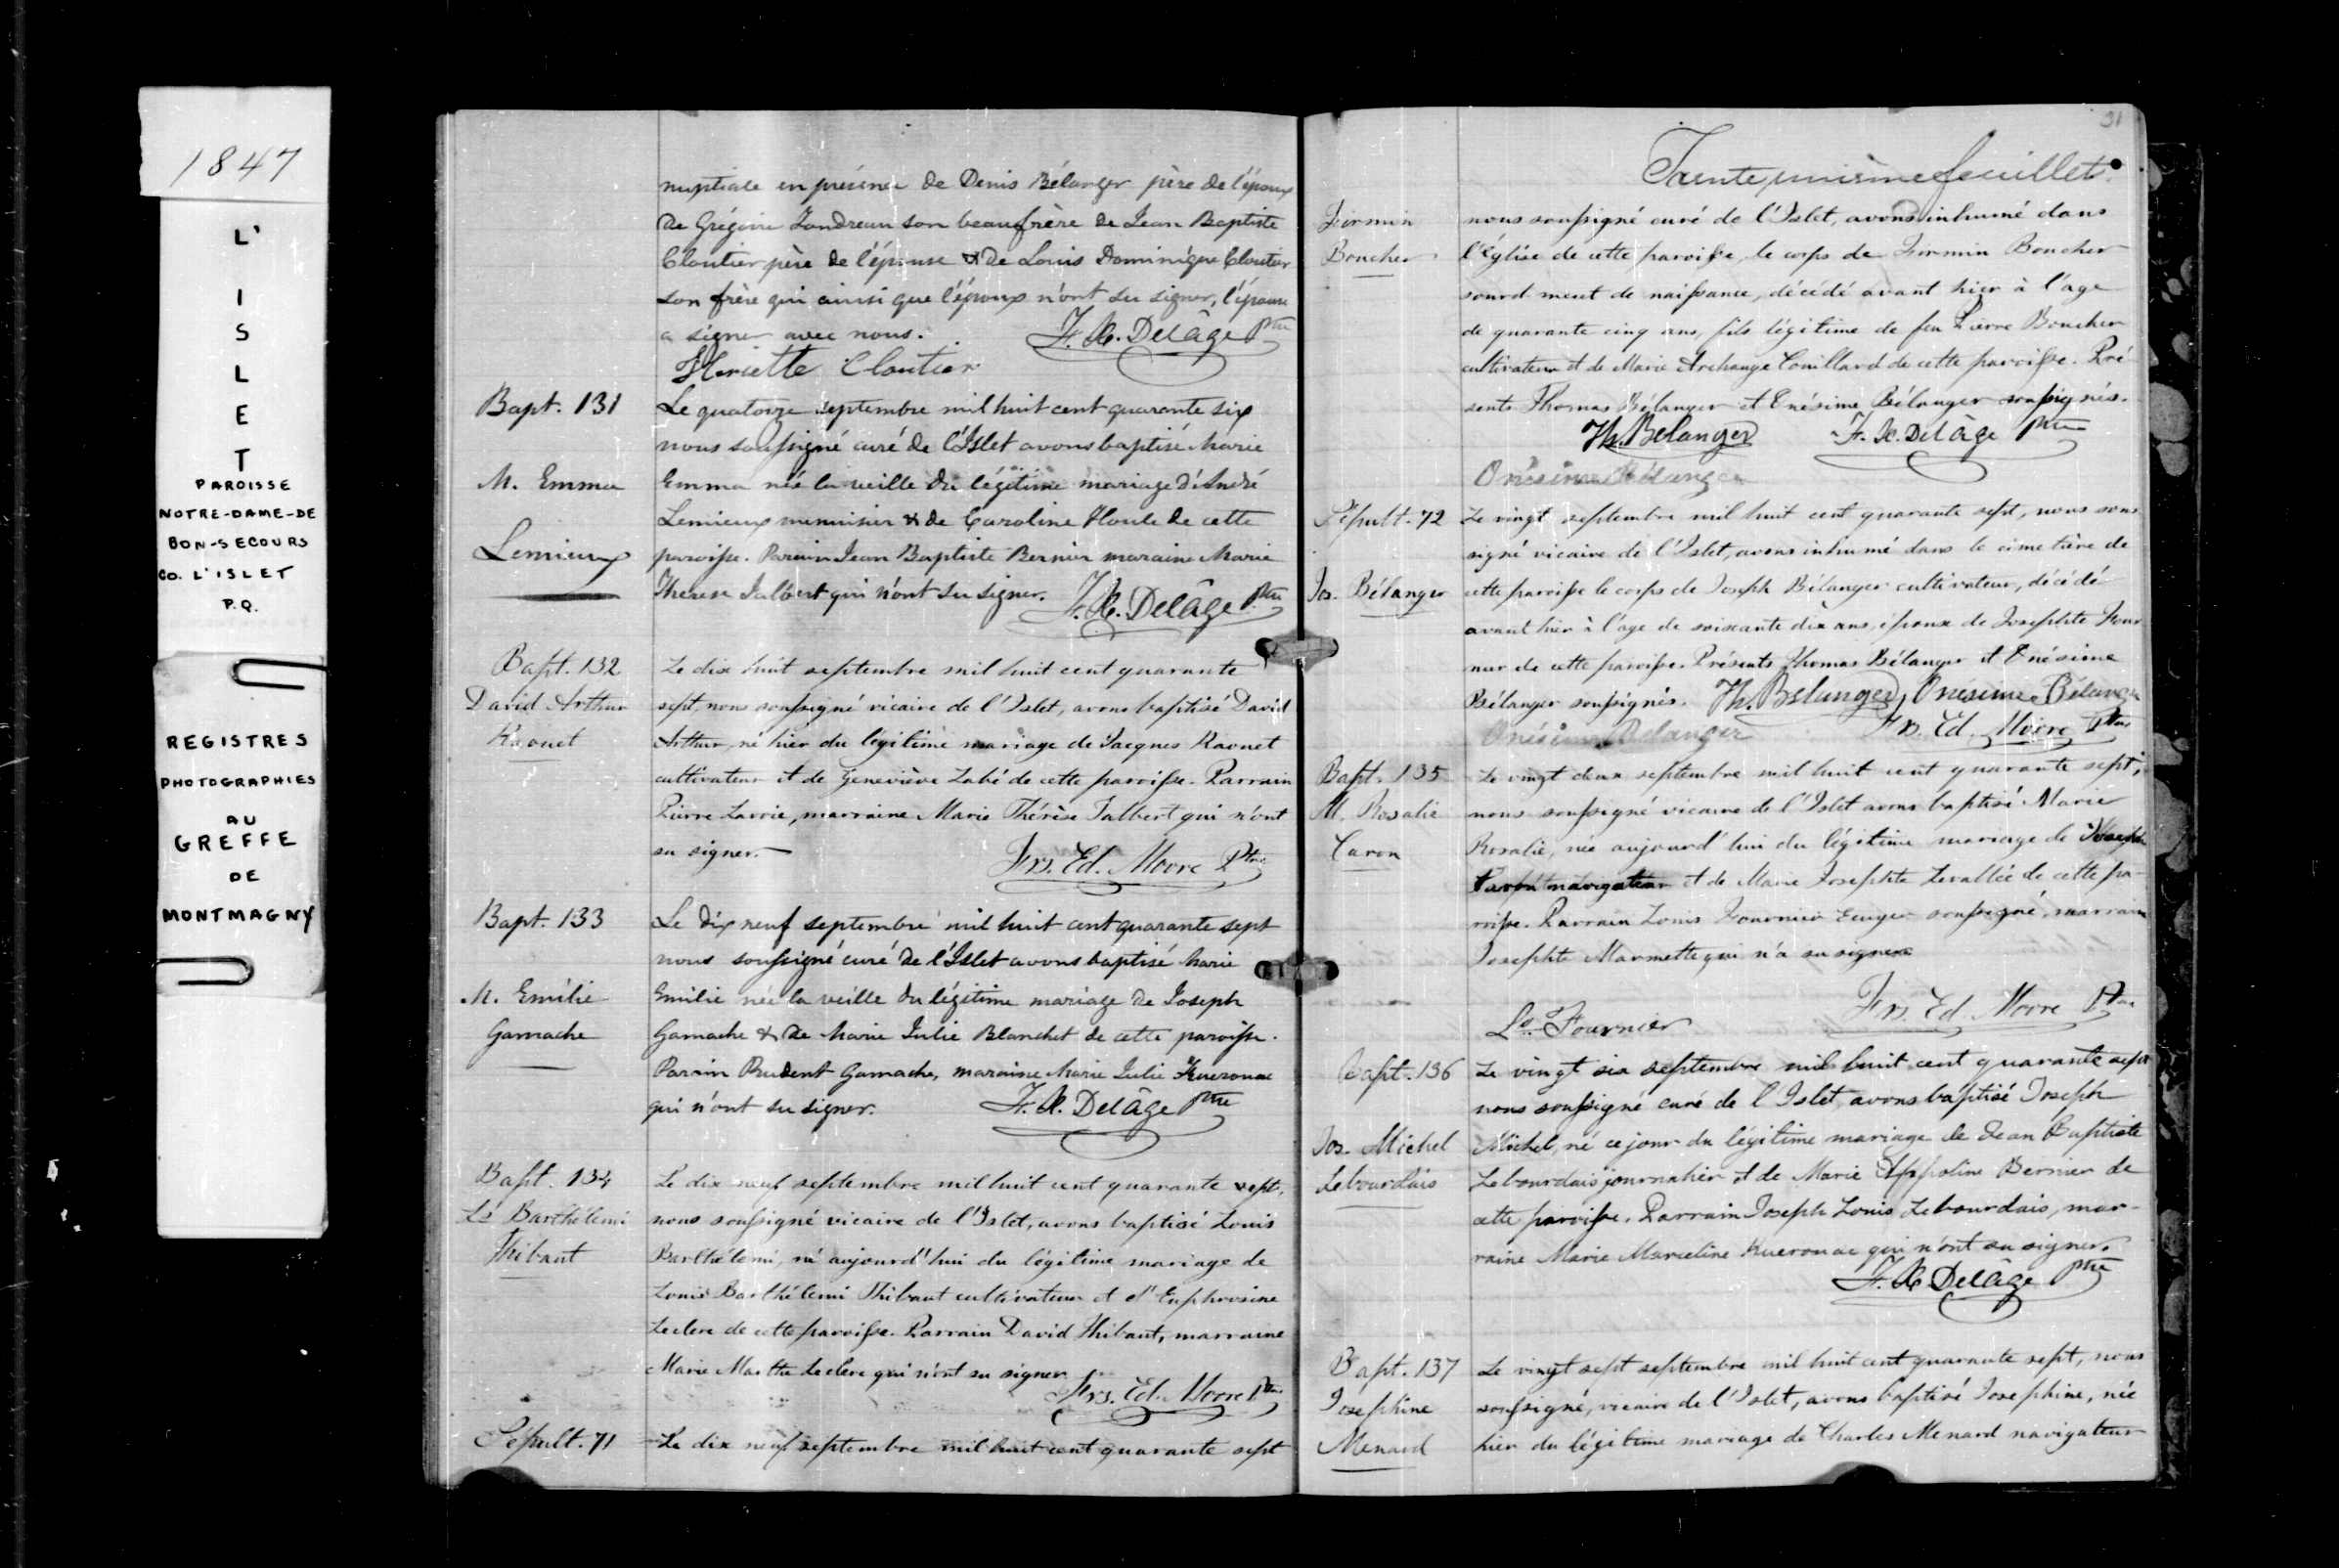 1847
L'
I
S
L
E
T
PAROISSE
NOTRE-DAME-DE
BON-SECOURS
CO. L'ISLET
P.Q.
REGISTRES
PHOTOGRAPHIES
AU
GREFFE
DE
MONTMAGNY
nuptiale en présence de Denis Bélanger père de l'époux
de Grégoire Jondreau son beaufrère de Jean Baptiste
Cloutier père de l'épouse & de Louis Dominique Cloutier
son frère qui ainsi que l'époux n'ont su signer, l'épouse
a signer avec nous. F. X. Delâge Ptre
Henriette Cloutier
Bapt. 131
M. Emma
Lemieux
Le quatorze septembre mil huit cent quarante six
nous soussigné curé de l'Islet avons baptisé Marie
Emma née la veille du légitime mariage d'André
Lemieux menuisier & de Caroline Houle de cette
paroisse. Parain Jean Baptiste Bernier maraine Marie
Therese Jalbert qui n'ont su signer. F. X. Delâge Ptre
Bapt. 132
David Arthur
Kaouet
Le dix huit septembre mil huit cent quarante
sept, nous soussigné vicaire de l'Islet, avons baptisé David
Arthur, né hier du légitime mariage de Jacques Kaouet
cultivateur et de Geneviève Labé de cette paroisse. Parrain
Pierre Lavoie, marraine Marie Thérèse Talbert qui n'ont
su signer. Frs. Ed. Moore Ptre
Bapt. 133
M. Emilie
Gamache
Le dix neuf septembre mil huit cent quarante sept
nous soussigné curé de l'Islet avons baptisé Marie
Emilie née la veille du légitime mariage de Joseph
Gamache & de Marie Julie Blanchet de cette paroisse.
Parain Prudent Gamache, maraine Marie Julie Kuerouac
qui n'ont su signer. F. X. Delâge Ptre
Bapt. 134
Ls Barthélemi
Thibaut
Le dix neuf septembre mil huit cent quarante sept,
nous soussigné vicaire de l'Islet, avons baptisé Louis
Barthélemi, né aujourd'hui du légitime mariage de
Louis Barthélemi Thibaut cultivateur et d'Euphrosine
Leclerc de cette paroisse. Parrain David Thibaut, marraine
Marie Marthe Leclerc qui n'ont su signer
Frs. Ed. Moore Ptre
Sepult. 71
Le dix neuf septembre mil huit cent quarante sept
31
Trente unième feuillet.
Firmin
Boucher
nous soussigné curé de l'Islet, avons inhumé dans
l'église de cette paroisse, le corps de Firmin Boucher
sourd muet de naissance, décédé avant hier à l'age
de quarante cinq ans, fils légitime de feu Pierre Boucher
cultivateur et de Marie Archange Couillard de cette paroisse. Pré
sents Thomas Bélanger et Enésime Bélanger soussignés.
Th. Belanger F. X. Delâge Ptre
Onésime Bélanger
Sépult. 72
Jos. Bélanger
Le vingt septembre mil huit cent quarante sept, nous sous
signé vicaire de l'Islet, avons inhumé dans le cimetière de
cette paroisse le corps de Joseph Bélanger cultivateur, décédé
avant hier à l'age de soixante dix ans, époux de Josephte Four
nier de cette paroisse. Présents Thomas Bélanger et Enésime
Bélanger soussignés. Th. Belanger, Onésime Bélanger
Onésime Bélanger Frs. Ed. Moore Ptre
Bapt. 135
M. Rosalie
Caron
Le vingt deux septembre mil huit cent quarante sept,
nous soussigné vicaire de l'Islet avons baptisé Marie
Rosalie, née aujourd'hui du légitime mariage de Joseph
Caron navigateur et de Marie Josephte Levallée de cette pa-
roisse. Parrain Louis Fournier Ecuyer soussigné, marraine
Josephte Marmette qui n'a su signer
Ls. Fournier Frs. Ed. Moore Ptre
Bapt. 136
Jos. Michel
Lebourdais
Le vingt six septembre mil huit cent quarante sept
nous soussigné curé de l'Islet, avons baptisé Joseph
Michel, né ce jour du légitime mariage de Jean Baptiste
Lebourdais journalier et de Marie Appoline Bernier de
cette paroisse. Parrain Joseph Louis Lebourdais, mar-
raine Marie Marceline Kuerouac qui n'ont su signer.
F. X. Delâge Ptre
Bapt. 137
Josephine
Menard
Le vingt sept septembre mil huit cent quarante sept, nous
soussigné, vicaire de l'Islet, avons baptisé Josephine, née
hier du légitime mariage de Charles Menard navigateur